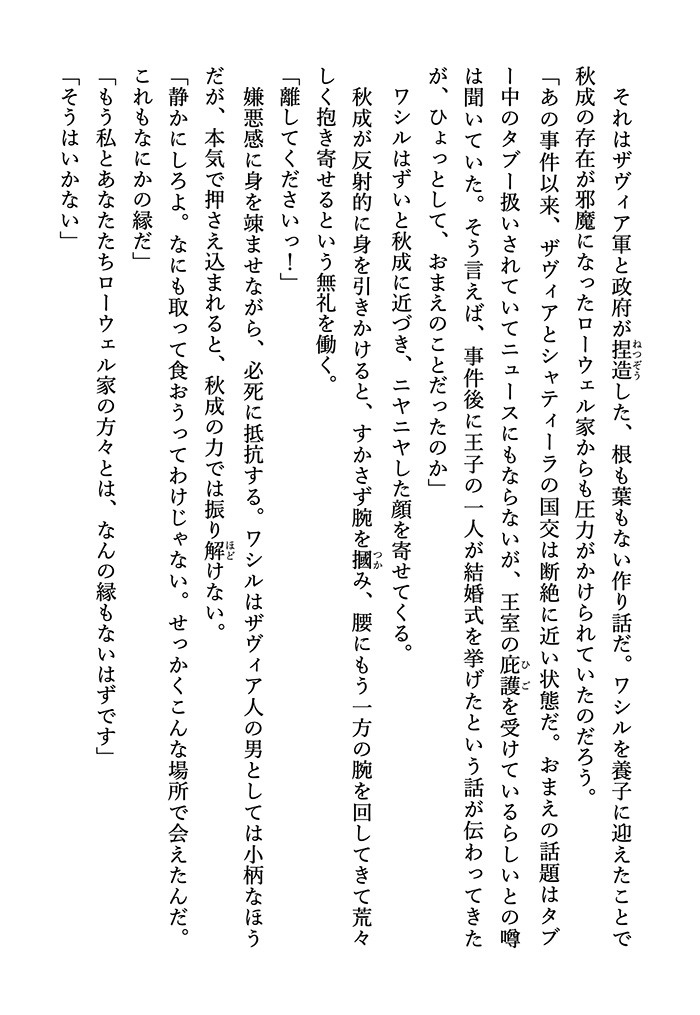 それはザヴィア軍と政府が捏造した、根も葉もない作り話だ。ワシルを養子に迎えたことで
秋成の存在が邪魔になったローウェル家からも圧力がかけられていたのだろう。
「あの事件以来、ザヴィアとシャティーラの国交は断絶に近い状態だ。おまえの話題はタブ
ー中のタブー扱いされていてニュースにもならないが、王室の庇護を受けているらしいとの噂
は聞いていた。そう言えば、事件後に王子の一人が結婚式を挙げたという話が伝わってきた
が、ひょっとして、おまえのことだったのか」
ワシルはずいと秋成に近づき、ニヤニヤした顔を寄せてくる。
秋成が反射的に身を引きかけると、すかさず腕を摑み、腰にもう一方の腕を回してきて荒々
しく抱き寄せるという無礼を働く。
「離してくださいっ！」
嫌悪感に身を竦ませながら、必死に抵抗する。ワシルはザヴィア人の男としては小柄なほう
だが、本気で押さえ込まれると、秋成の力では振り解けない。
「静かにしろよ。なにも取って食おうってわけじゃない。せっかくこんな場所で会えたんだ。
これもなにかの縁だ」
「もう私とあなたたちローウェル家の方々とは、なんの縁もないはずです」
「そうはいかない」